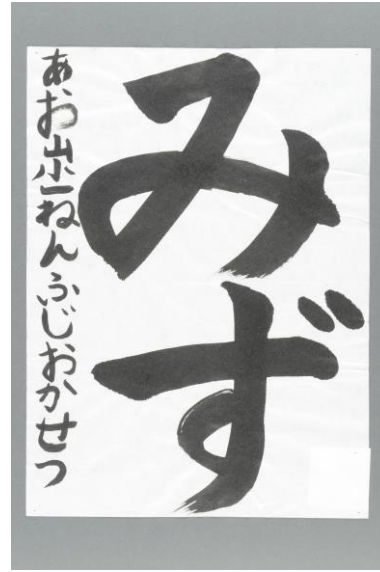 みず
あお山小一ねんふじおかせつ